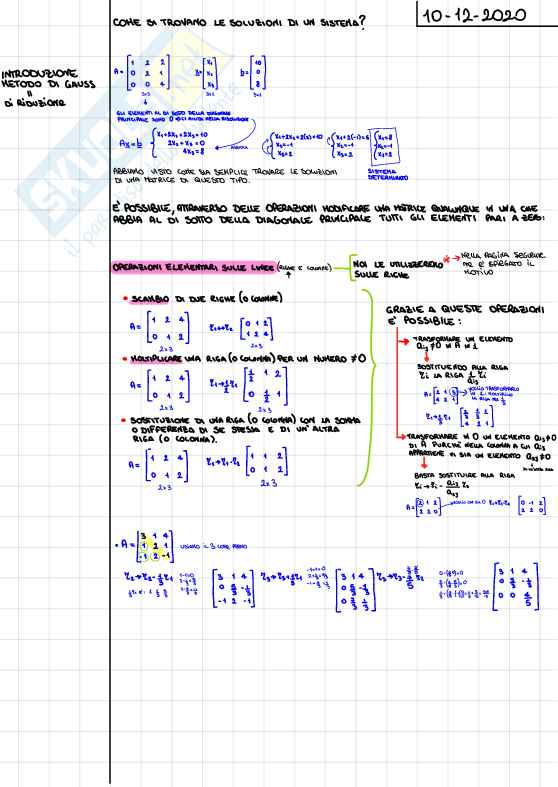 10-12-2020
COME SI TROVANO LE SOLUZIONI DI UN SISTEMA?
INTRODUZIONE
METODO DI GAUSS
=
DI RIDUZIONE
A = [1 2 2; 0 2 1; 0 0 4] 3x3
x = [x1; x2; x3] 3x1
b = [10; 0; 8] 3x1
GLI ELEMENTI AL DI SOTTO DELLA DIAGONALE
PRINCIPALE SONO 0
Ax = b
x1+2x2+2x3=10
2x2+x3=0
4x3=8
x1+2x2+2(2)=10
x2=-1
x3=2
x1+2(-1)=6
x2=-1
x3=2
x1=8
x2=-1
x3=2
SISTEMA
DETERMINATO
ABBIAMO VISTO COME SIA SEMPLICE TROVARE LE SOLUZIONI
DI UNA MATRICE DI QUESTO TIPO.
E' POSSIBILE, ATTRAVERSO DELLE OPERAZIONI MODIFICARE UNA MATRICE QUALUNQUE IN UNA CHE
ABBIA AL DI SOTTO DELLA DIAGONALE PRINCIPALE TUTTI GLI ELEMENTI PARI A ZERO:
OPERAZIONI ELEMENTARI SULLE LINEE (RIGHE E COLONNE)
NOI LE UTILIZZEREMO
SULLE RIGHE
* NELLA PAGINA SEGUENTE
MI E' SPIEGATO IL
MOTIVO
• SCAMBIO DI DUE RIGHE (O COLONNE)
A = [1 2 4; 0 1 2] 2x3
r1↔r2 [0 1 2; 1 2 4]
• MOLTIPLICARE UNA RIGA (O COLONNA) PER UN NUMERO ≠0
A = [1 2 4; 0 1 2] 2x3
r1→½r1 2x3
• SOSTITUZIONE DI UNA RIGA (O COLONNA) CON LA SOMMA
O DIFFERENZA DI SE STESSA E DI UN'ALTRA
RIGA (O COLONNA).
A = [1 2 4; 0 1 2] 2x3
r1→r1-r2 [1 1 2; 0 1 2] 2x3
GRAZIE A QUESTE OPERAZIONI
E' POSSIBILE:
TRASFORMARE UN ELEMENTO
aij≠0 IN A IN 1
SOSTITUENDO ALLA RIGA
ri LA RIGA 1/aij ri
VOGLIO TRASFORMARLO
IN 1: MOLTIPLICO
LA RIGA PER 1/3
TRASFORMARE IN 0 UN ELEMENTO aij≠0
DI A PURCHÉ NELLA COLONNA A CUI aij
APPARTIENE VI SIA UN ELEMENTO asj≠0
BASTA SOSTITUIRE ALLA RIGA
ri→ri- aij/asj rs
• A = [3 1 4; 1 2 1; -1 2 -1]
USIAMO IL 3 COME PERNO
r2→r2-⅓r1
[3 1 4; 0 5/3 -1/3; -1 2 -1]
r3→r3+⅓r1
[3 1 4; 0 5/3 -1/3; 0 7/3 1/3]